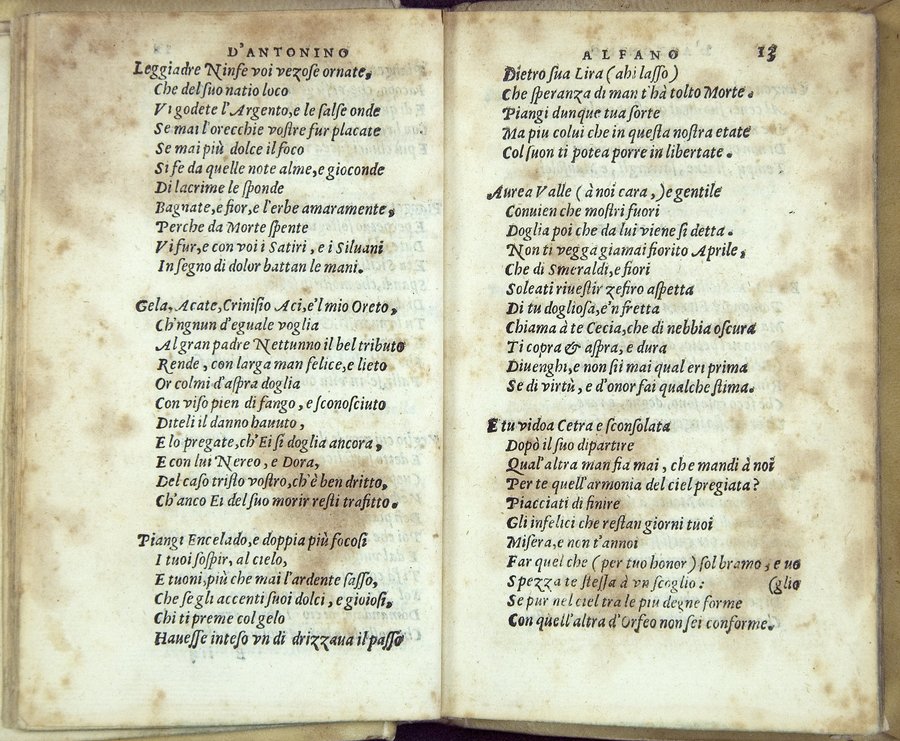 D'ANTONINO
Leggiadre Ninfe voi vezose ornate,
Che del suo natio loco
Vi godete l'Argento, e le salse onde
Se mai l'orecchie vostre fur placate
Se mai più dolce il foco
Si fe da quelle note alme, e gioconde
Di lacrime le sponde
Bagnate, e fior, e l'erbe amaramente,
Perche da Morte spente
Vi fur, e con voi i Satiri, e i Siluani
In segno di dolor battan le mani.
Gela, Acate, Crinisio Aci, e'l mio Oreto,
Ch'ngnun d'eguale voglia
Al gran padre Nettunno il bel tributo
Rende, con larga man felice, e lieto
Or colmi d'aspra doglia
Con viso pien di fango, e sconosciuto
Diteli il danno hauuto,
E lo pregate, ch'Ei si doglia ancora,
E con lui Nereo, e Dora,
Del caso tristo vostro, ch'è ben dritto,
Ch'anco Ei del suo morir resti trafitto.
Piangi Encelado, e doppia più focosi
I tuoi sospir, al cielo,
E tuoni, più che mai l'ardente sasso,
Che se gli accenti suoi dolci, e gioiosi,
Chi ti preme col gelo
Hauesse inteso vn dì drizzaua il passo
ALFANO 13
Dietro sua Lira (ahi lasso)
Che speranza di man t'hà tolto Morte.
Piangi dunque tua sorte
Ma piu colui che in questa nostra etate
Col suon ti potea porre in libertate.
Aurea Valle (à noi cara,) e gentile
Conuien che mostri fuori
Doglia poi che da lui viene si detta.
Non ti vegga giamai fiorito Aprile,
Che di Smeraldi, e fiori
Soleati riuestir zefiro aspetta
Di tu dogliosa, e'n fretta
Chiama à te Cecia, che di nebbia oscura
Ti copra & aspra, e dura
Diuenghi, e non sii mai qual eri prima
Se di virtù, e d'onor fai qualche stima.
E tu vidoa Cetra e sconsolata
Dopò il suo dipartire
Qual'altra man fia mai, che mandi à noi
Per te quell'armonia del ciel pregiata?
Piacciati di finire
Gli infelici che restan giorni tuoi
Misera, e non t'annoi
Far quel che (per tuo honor) sol bramo, e uo
Spezza te stessa à vn scoglio: (glio
Se pur nel ciel tra le piu degne forme
Con quell'altra d'Orfeo non sei conforme.